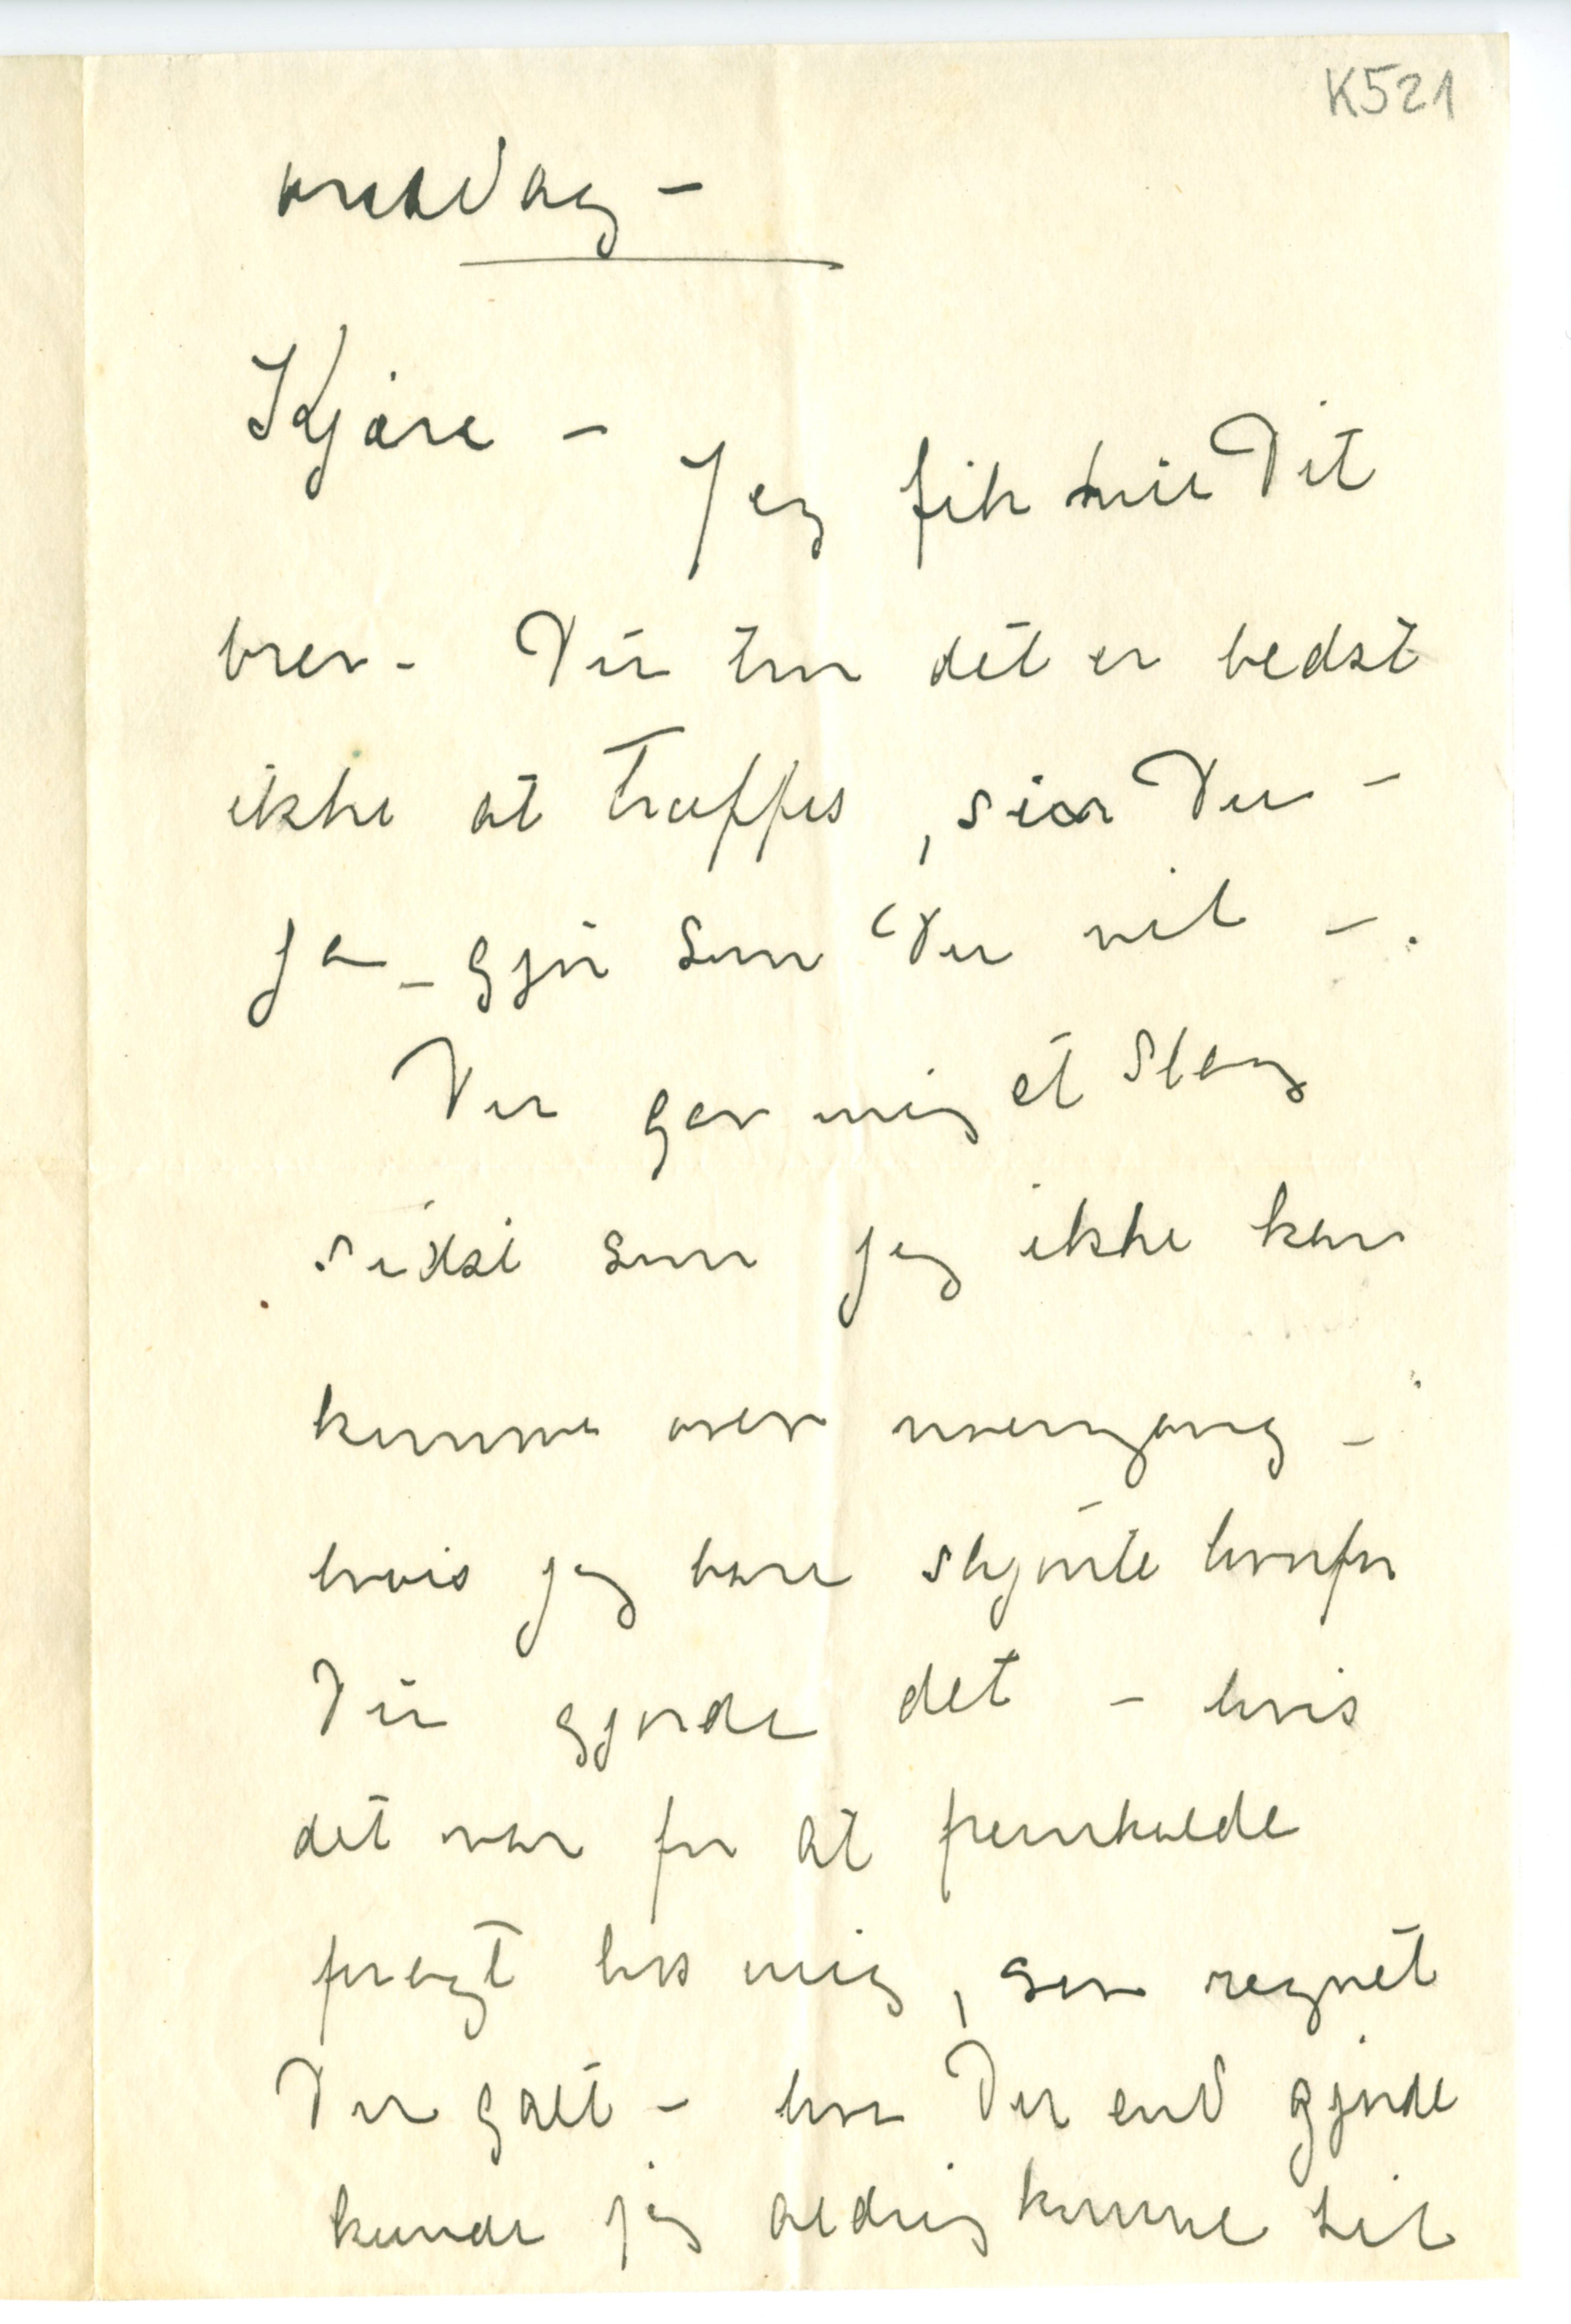 K521
onsdag –
Kjære –
Jeg fik nu Dit
brev – Du tror det er bedst
ikke at træffes, sier Du –
Ja – gjør som Du vil –.
Du gav mig et slag
sidst som jeg ikke kan
komme over noengang –
hvis jeg bare skjønte hvorfor
Du gjorde det – hvis
det var for at fremkalde
foragt hos mig, har regnet
Du galt – hva Du end gjorde
kunde jeg aldrig komme til